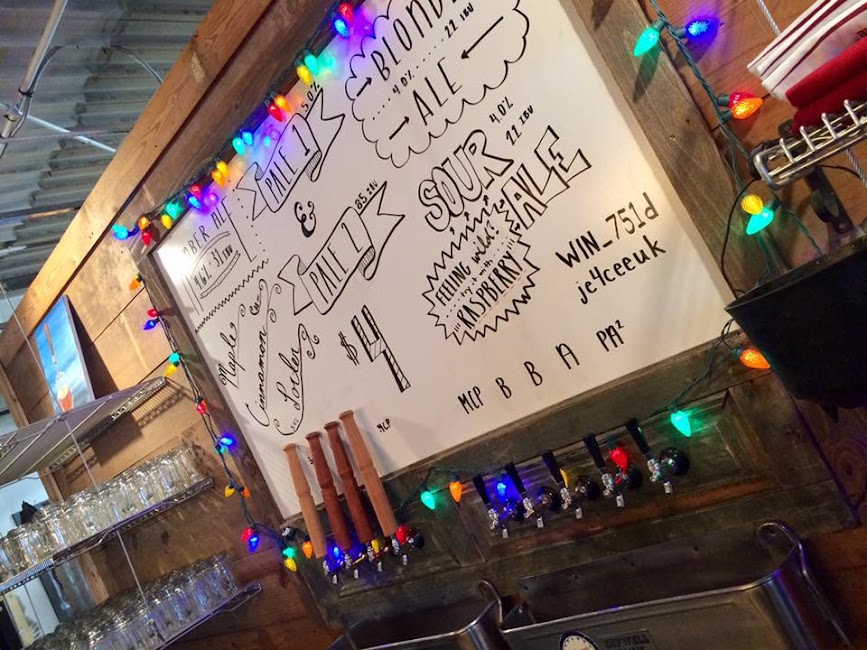 BLONDE
4.0% ...... 22 IBU
ALE
PALE 1
5.0%
&
PALE 2
85 IBU
BER AL
4.6% 31 IBU
Maple
Cinnamon
$4
SOUR
ALE
4.0%
22 IBU
FEELING wild?
try it with
RASPBERRY
WIN_751d
je4ceeuk
MCP B B A PA²
MCP